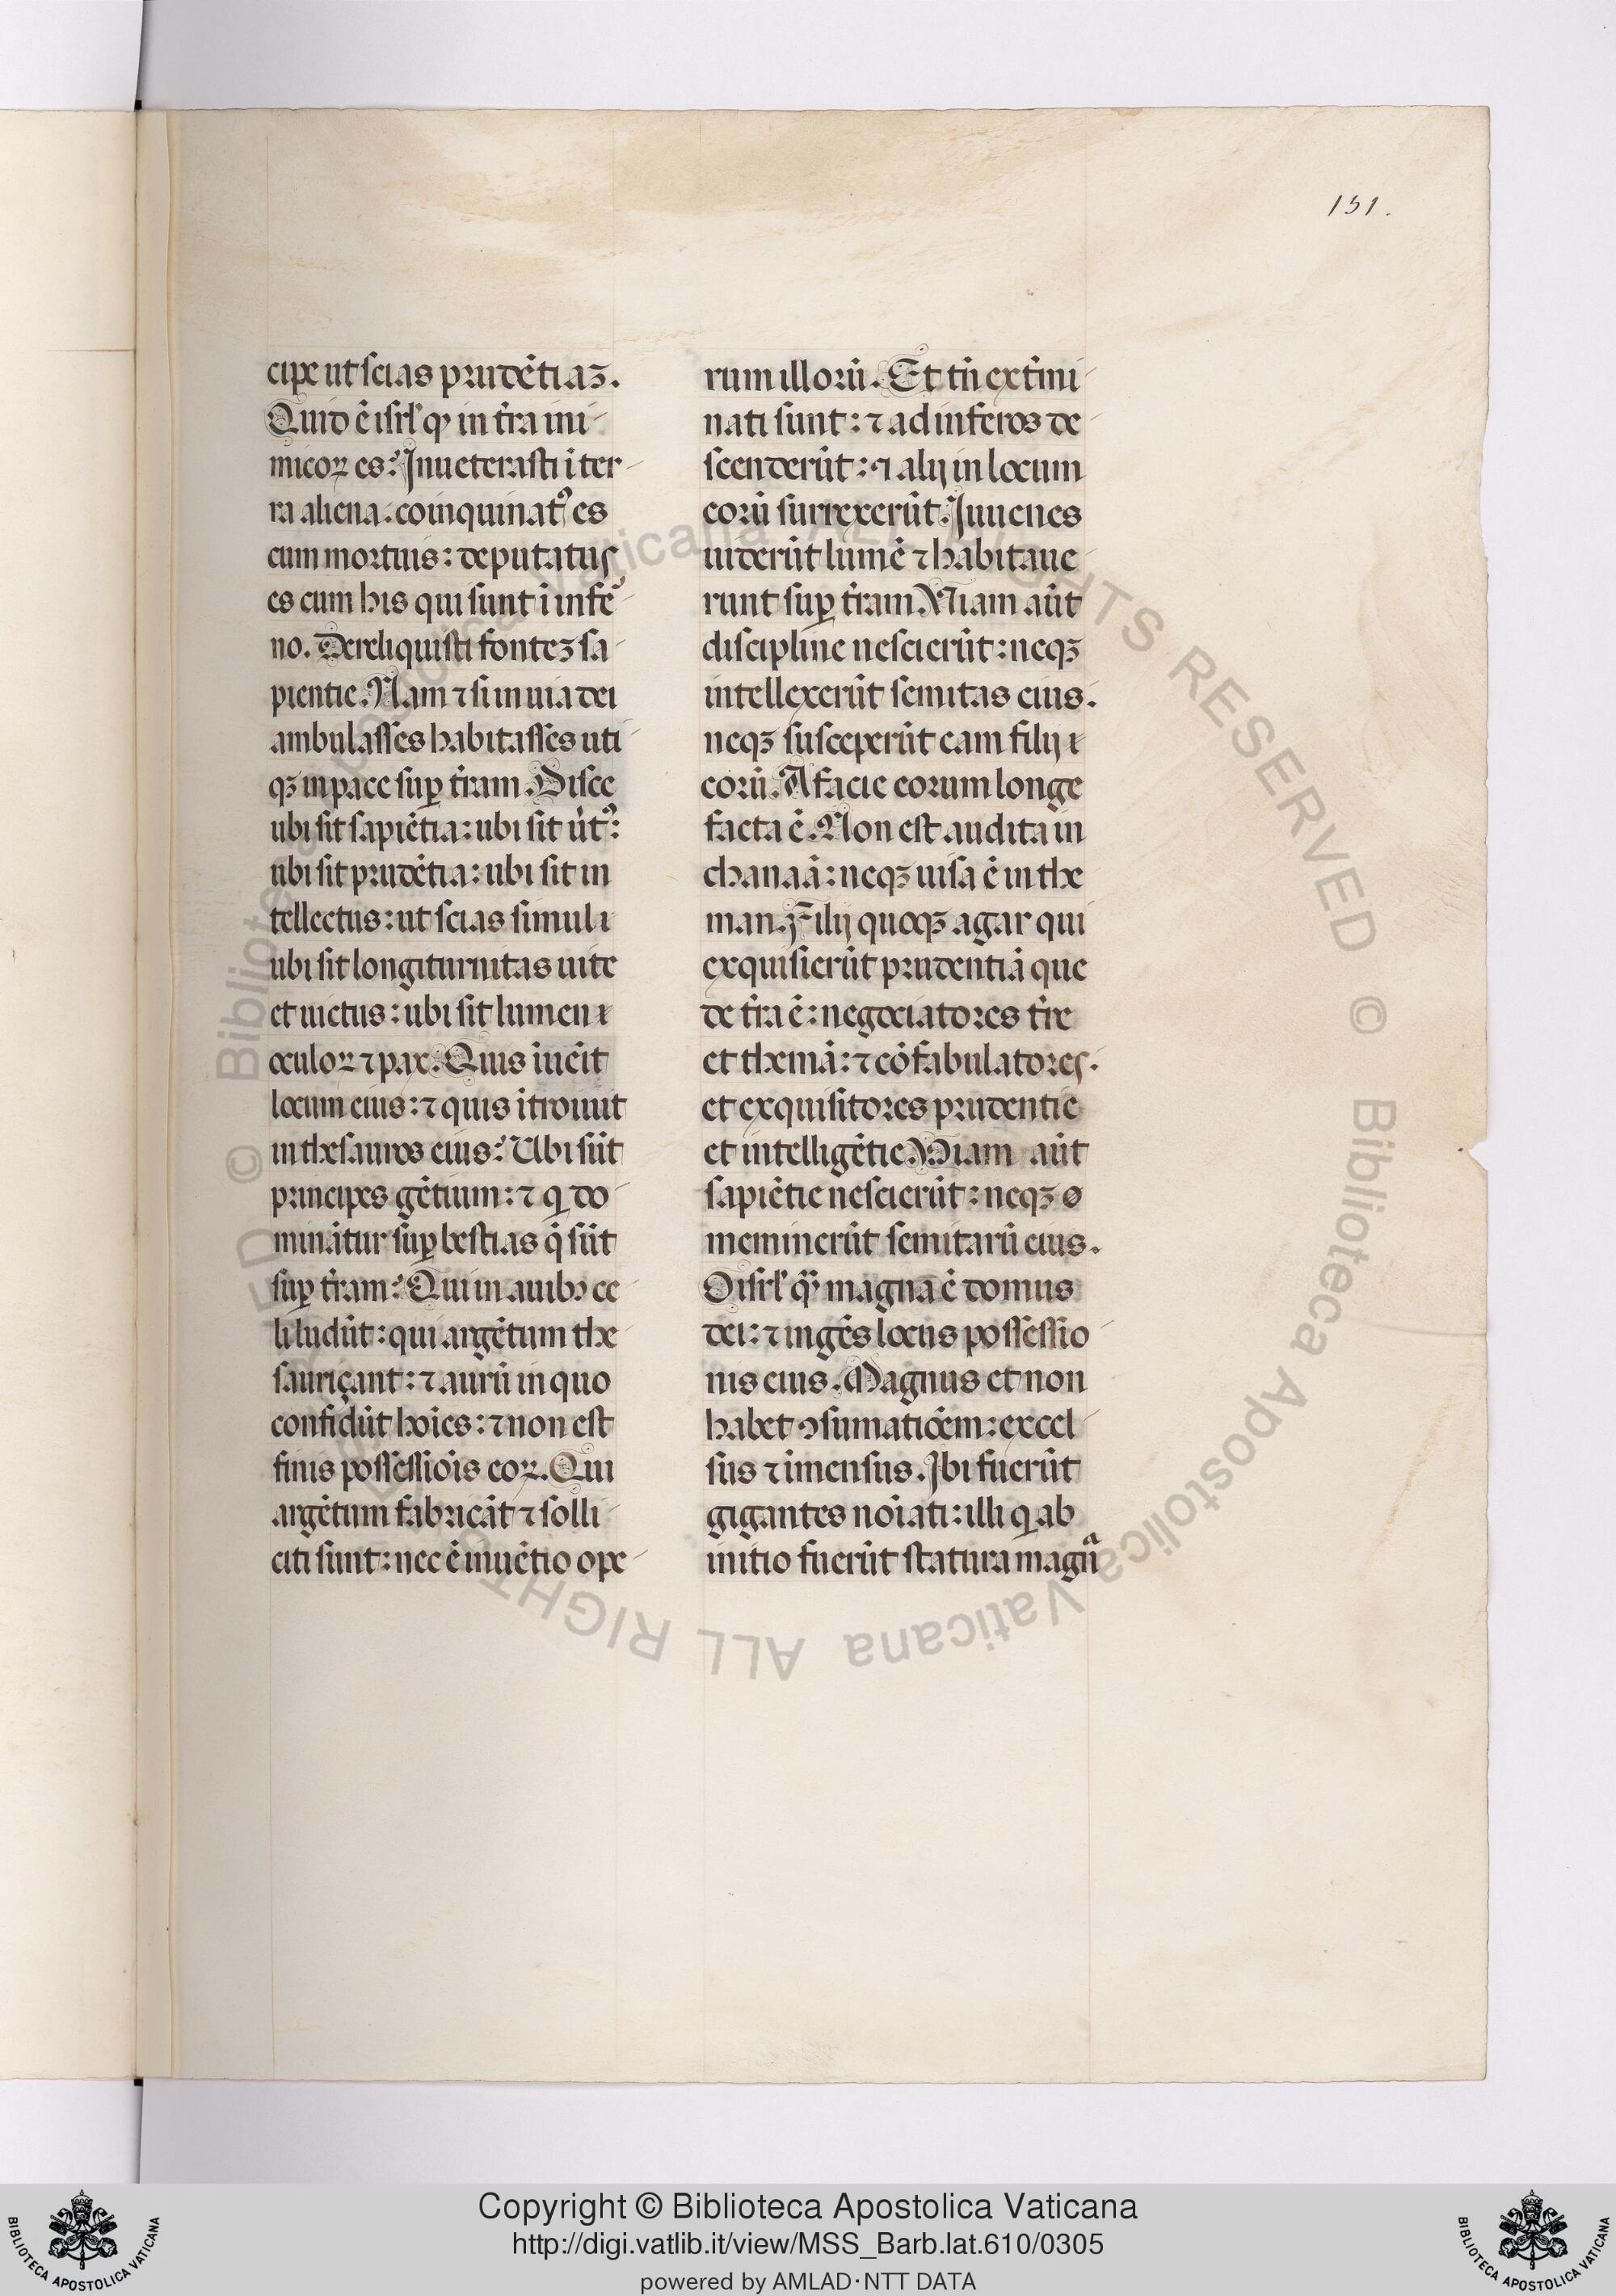 151.
cipe ut scias prudẽtiaꝫ.
Quid ẽ isrł ꝙ in t̃ra ini
micoꝝ es? Inueterasti ĩ ter
ra aliena. coinquinatꝰ es
cum mortuis: deputatus
es cum his qui sunt ĩ infẽ
no. Dereliquisti fonteꝫ sa
pientie. Nam ⁊ si in uia dei
ambulasses habitasses uti
qꝫ in pace suꝑ t̃ram. Disce
ubi sit sapiẽtia: ubi sit ũtꝰ:
ubi sit prudẽtia: ubi sit in
tellectus: ut scias simul ı
ubi sit longiturnitas uite
et uictus: ubi sit lumen ı
oculoꝝ ⁊ pax. Quis ĩuẽit
locum eius: ⁊ quis ĩtrouiit
in thesauros eius? Ubi sũt
principes gẽtium: ⁊ q̃ do
minãtur suꝑ bestias q̃ sũt
suꝑ t̃ram? Qui in auibꝫ ce
li ludũt: qui argẽtum the
sauriçant: ⁊ aurũ in quo
confidũt hoĩes: ⁊ non est
finis possessiõis eoꝝ. Qui
argẽtum fabricãt ⁊ solli
citi sunt: nec ẽ inuẽtio ope
rum illorũ. Et tñ ext̃mi
nati sunt: ⁊ ad inferos de
scenderũt: ⁊ alij in locum
eorũ surrexerũt. Iuuenes
uiderũt lumẽ ⁊ habitaue
runt suꝑ t̃ram. Uiam aũt
discipline nescierũt: neqꝫ
intellexerũt semitas eius.
neqꝫ susceperũt eam filij ı
eorũ. A facie eorum longe
facta ẽ. Non est audita in
chanaã: neqꝫ uisa ẽ in the
man. Filij quoqꝫ agar qui
exquisierũt prudentiã que
de t̃ra ẽ: negociatores t̃re
et themã: ⁊ cõfabulatores.
et exquisitores prudentie
et intelligẽtie. Uiam aũt
sapiẽtie nescierũt: neqꝫ ø
meminerũt semitarũ eius.
O isrł q̃ magna ẽ domus
dei: ⁊ ingẽs locus possessio
nis eius. Magnus et non
habet ꝯsumatiõem: excel
sus ⁊ imensus. Ibi fuerũt
gigantes noĩati: illi q̃ ab
initio fuerũt statura magnᵃ
Copyright © Biblioteca Apostolica Vaticana
http://digi.vatlib.it/view/MSS_Barb.lat.610/0305
powered by AMLAD·NTT DATA
BIBLIOTECA APOSTOLICA VATICANA
BIBLIOTECA APOSTOLICA VATICANA
© Biblioteca Apostolica Vaticana ALL RIGHTS RESERVED © Biblioteca Apostolica Vaticana ALL RIGHTS RESERVED